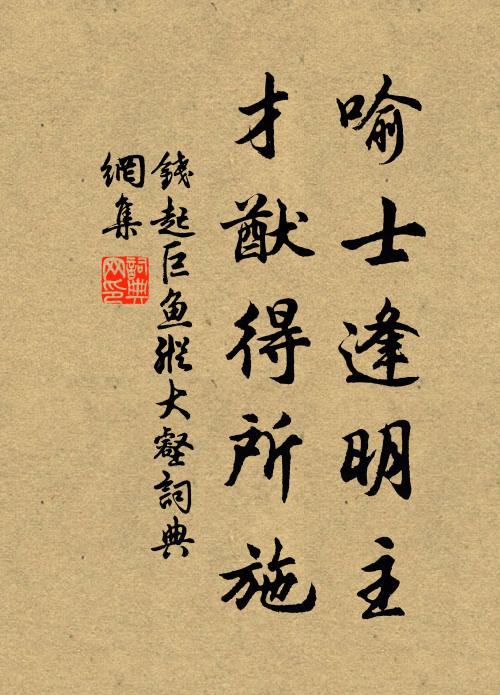 喻士逢明主
才猷得所施
錢起巨魚縱大壑詞典
網集
詞典
网印